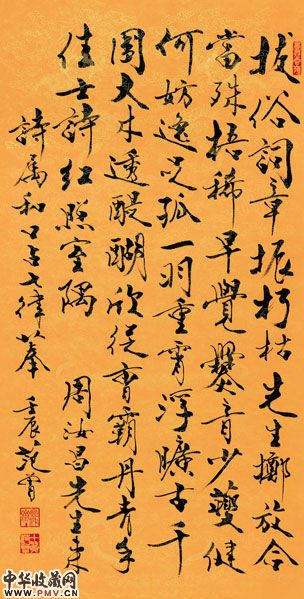 拔俗詞章振朽枯先生擲放合
當殊梧稀早覺爨音少夔健
何妨逸足孤一羽重霄浮曠古千
圍大木透醍醐欣從曹霸丹青手
佳士詩紅照室隅 周汝昌先生来
詩属和口占七律奉 壬辰范曾
中华收藏网
WWW.PMV.CN